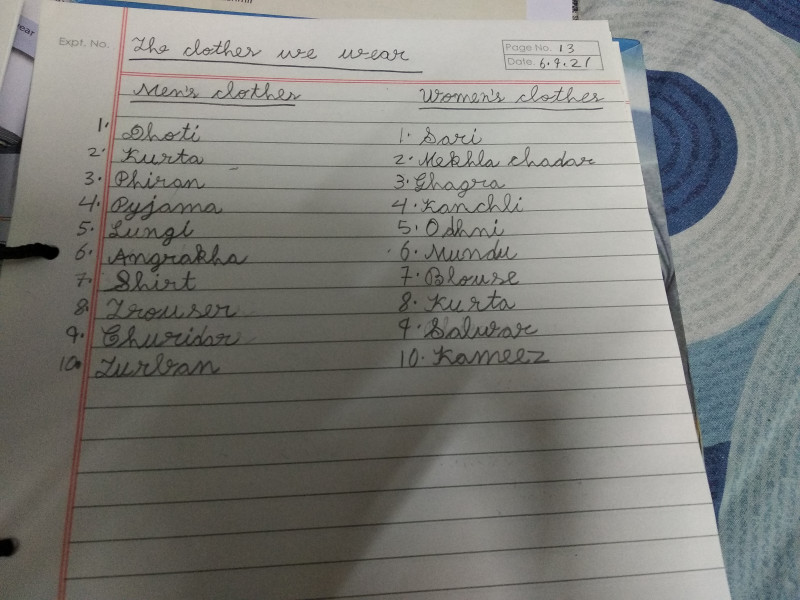 Expt. No.
The clothes we wear
Page No. 13
Date. 6.9.21
Men's clothes
Women's clothes
1. Dhoti
2. Kurta
3. Phiran
4. Pyjama
5. Lungi
6. Angrakha
7. Shirt
8. Trouser
9. Churidar
10. Turban
1. Sari
2. Mekhla chadar
3. Ghagra
4. Kanchli
5. Odhni
6. Mundu
7. Blouse
8. Kurta
9. Salwar
10. Kameez